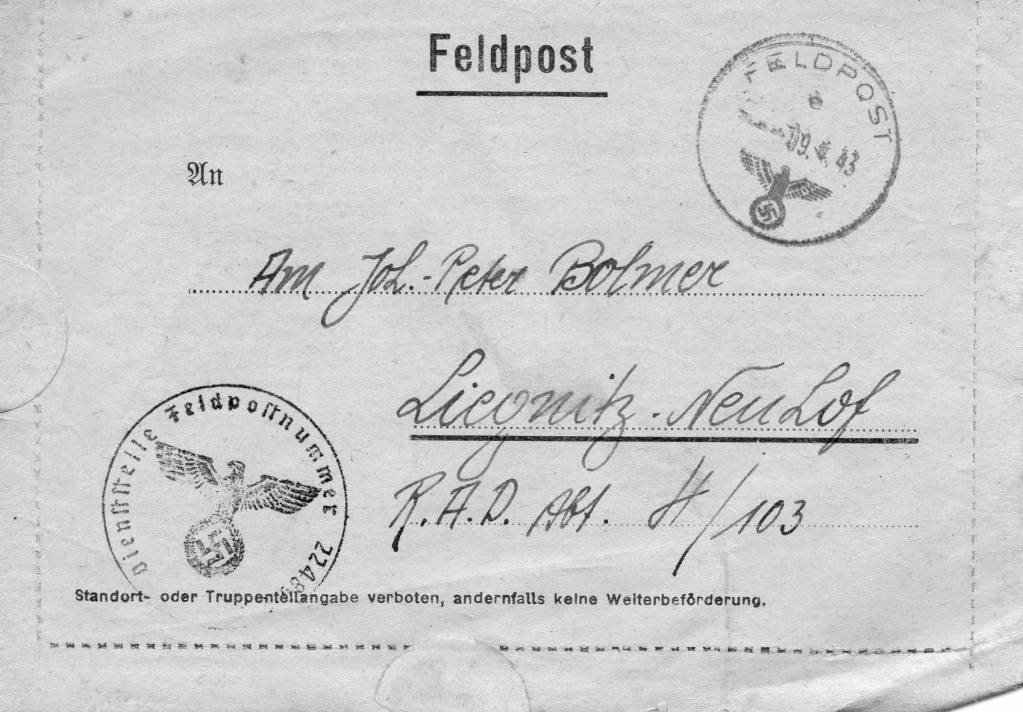 Feldpost
FELDPOST
e
09.4.43
An
Am Joh.-Peter Bolmer
Liegnitz-Neuhof
R.A.D. Abt. 4/103
Dienststelle Feldpostnummer 2248
Standort- oder Truppenteilangabe verboten, andernfalls keine Weiterbeförderung.